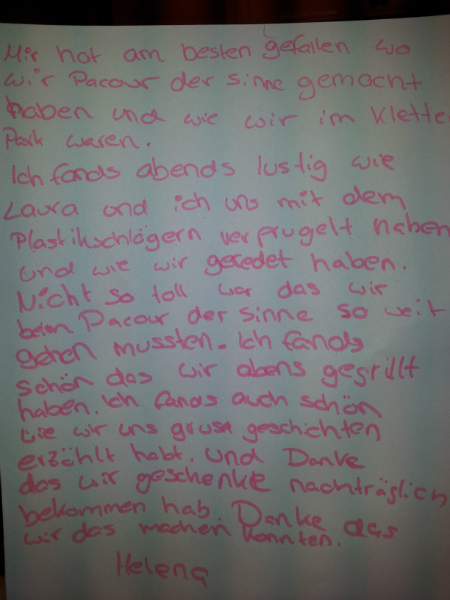 Mir hat am besten gefallen wo
wir Pacour der sinne gemacht
haben und wie wir im Klette
Park waren.
Ich fands abends lustig wie
Laura und ich uns mit dem
Plastikschlägern verprugelt haben
und wie wir geredet haben.
Nicht so toll war das wir
beim Pacour der sinne so weit
gehen mussten. Ich fands
schön das wir abens gegrillt
haben. Ich fands auch schön
wie wir uns grusl geschichten
erzählt habt. und Danke
das wir geschenke nachträglich
bekommen hab. Danke das
wir das machen konnten.
Helena